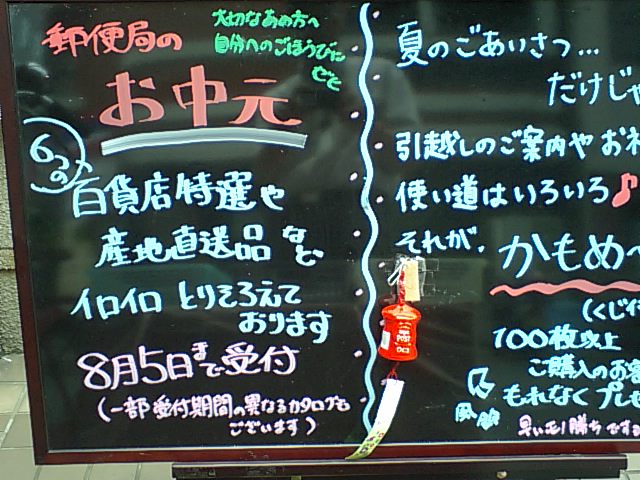 郵便局の
大切なあの方へ
自分へのごほうびに
ぜひ
お中元
6つの
百貨店特選や
産地直送品など
イロイロとりそろえて
おります
8月5日まで受付
(一部受付期間の異なるカタログも
ございます)
夏のごあいさつ…
だけじゃ
引越しのご案内やお礼
使い道はいろいろ♪
それが、かもめ〜
(くじ付
100枚以上
ご購入のお客
もれなくプレゼ
風鈴
早い者勝ちです
POST